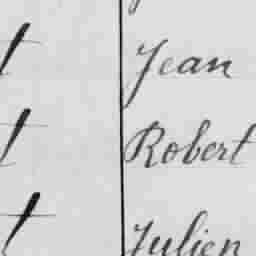 t Jean
t Robert
t Julien